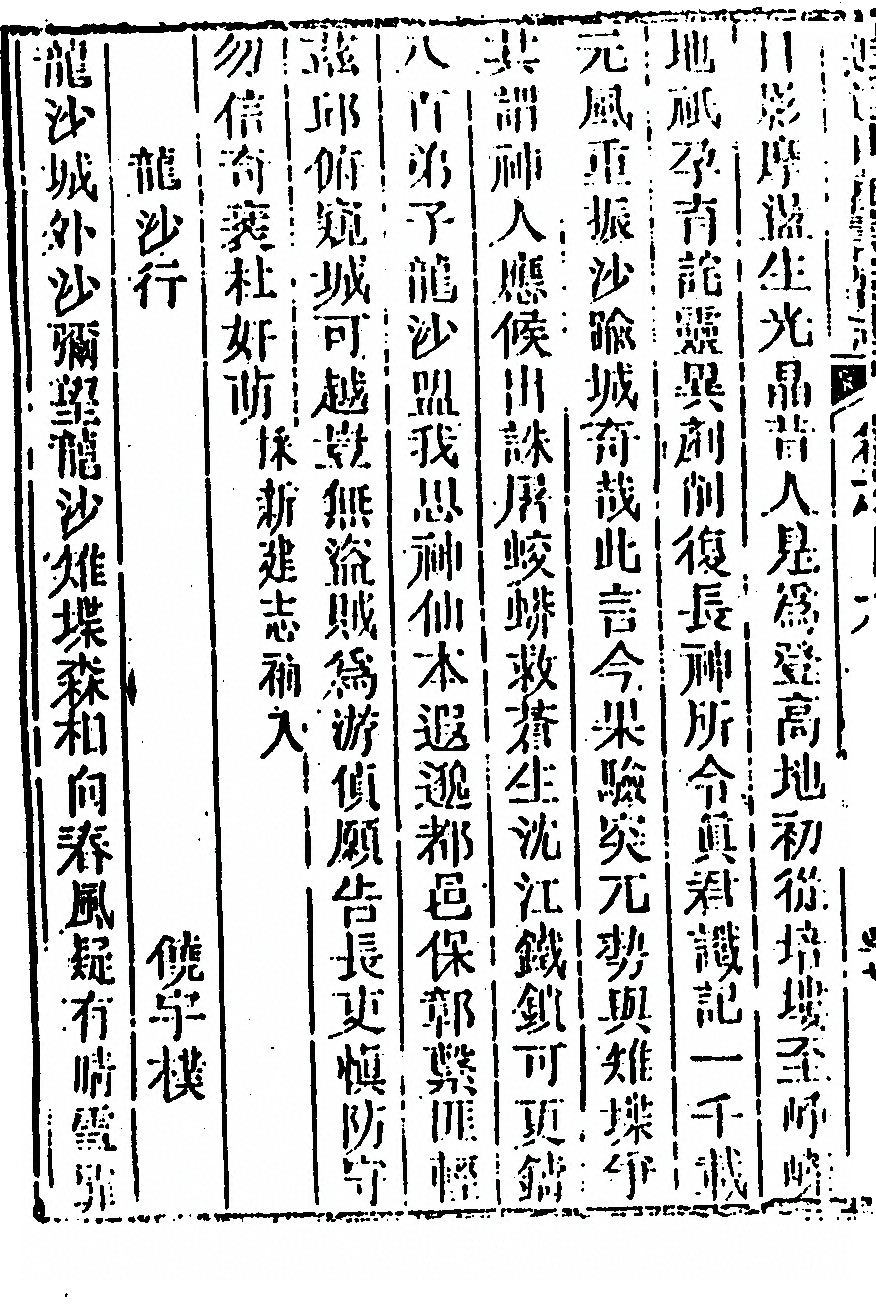 日影摩盪生光晶昔人是爲登高地初從培塿至崢嶸
地祇孕育詫靈異剷削復長神所令眞君讖記一千載
元風重振沙踰城奇哉此言今果驗突兀勢與雉堞爭
共謂神人應候出誅屠蛟蟒救蒼生沈江鐵鎖可更鑄
八百弟子龍沙盟我思神仙本遐邈都邑保鄣繫匪輕
茲邱俯窺城可越豈無盜賊爲游偵願告長吏愼防守
勿信奇衺杜奸萌
採新建志補入
龍沙行
饒宇樸
龍沙城外沙彌望龍沙雉堞森相向春風疑有晴雪飛